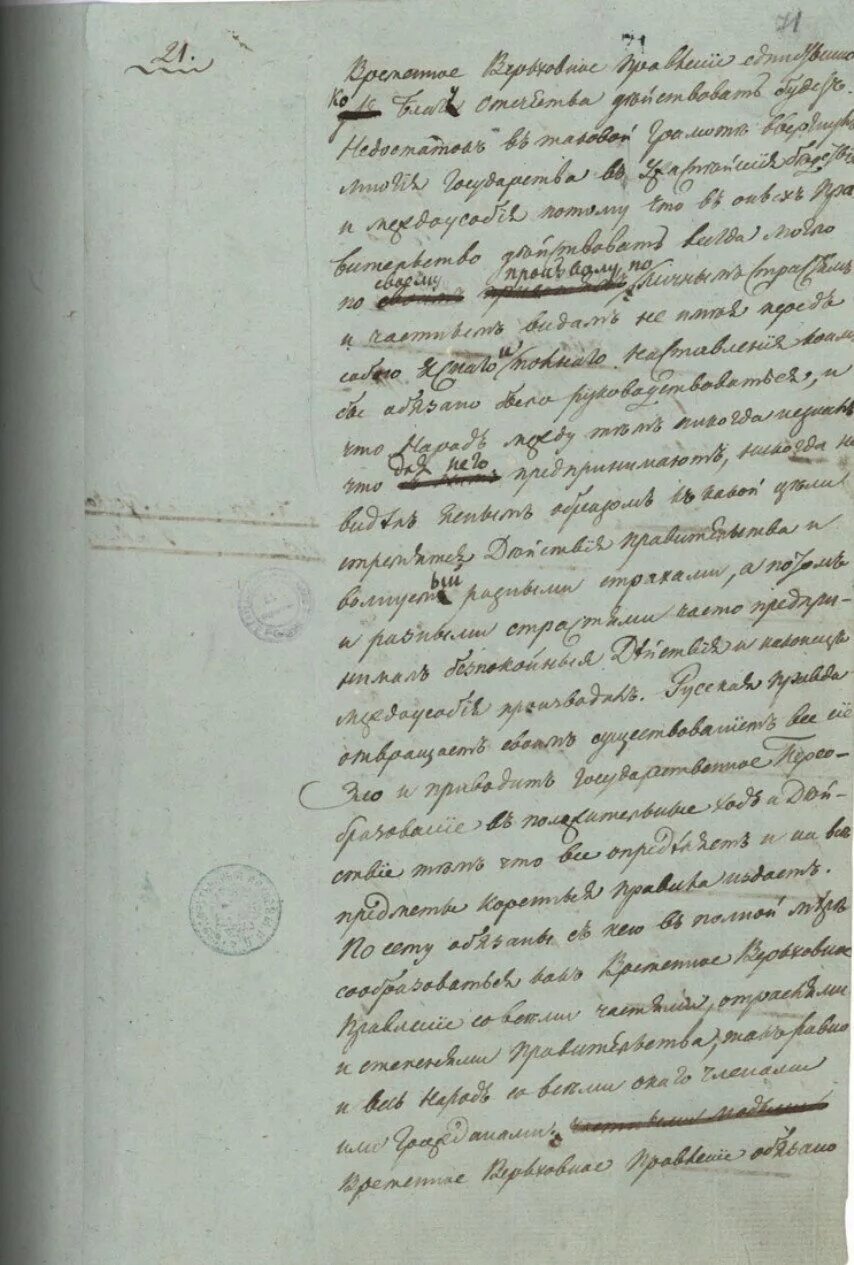 71
21.
71
Временное Верьховное Правленіе единственно
ко благу отечества дѣйствовать будетъ.
Недостатокъ въ таковой Грамотѣ ввергнулъ
многія Государства въ ужаснѣйшія бѣдствія
и междоусобія потому что въ оныхъ Пра-
вительство дѣйствовать всегда могло
по своему произволу по личнымъ страстямъ
и частнымъ видамъ не имѣя передъ
собою яснаго и полнаго наставленія коимъ
бы обязано было руководствоваться, и
что Народъ между тѣмъ никогда не зналъ
что для него предпринимаютъ, никогда не
видѣлъ яснымъ образомъ къ какой цѣли
стремятся Дѣйствія правительства и
волнуемый разными страхами, а потомъ
и разными страстями часто предпри-
нималъ безпокойныя Дѣйствія и наконецъ
междоусобія производилъ. Русская Правда
отвращаетъ своимъ существованіемъ все сіе
Зло и приводитъ Государственное Преоб-
бразованіе въ положительные ходъ и Дѣй-
ствіе тѣмъ что все опредѣляетъ и на всѣ
предметы коренныя правила издаетъ.
По сему обязаны съ нею въ полной мѣрѣ
сообразоваться какъ Временное Верьховное
Правленіе со всѣми частями, отраслями
и степенями Правительства, такъ равно
и весь Народъ со всѣми онаго членами
или Гражданами. частными людьми
Временное Верьховное Правленіе обязано